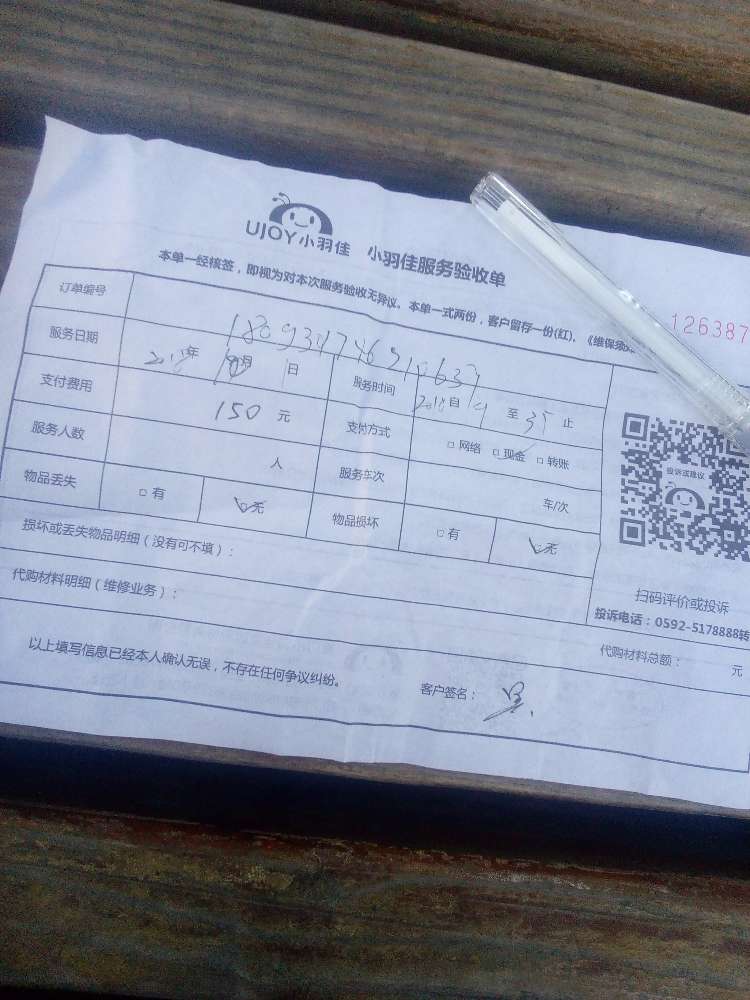 UJOY小羽佳 小羽佳服务验收单
本单一经核签，即视为对本次服务验收无异议。本单一式两份，客户留存一份(红)，《维保须
126387
订单编号
服务日期 年 月 1日 服务时间 自 至 止
支付费用 150 元 支付方式 □网络 □现金 □转账
服务人数 人 服务车次 车/次
物品丢失 □有 □无 物品损坏 □有 □无
投诉或建议
损坏或丢失物品明细（没有可不填）：
扫码评价或投诉
投诉电话：0592-5178888转
代购材料明细（维修业务）： 代购材料总额： 元
以上填写信息已经本人确认无误，不存在任何争议纠纷。 客户签名：